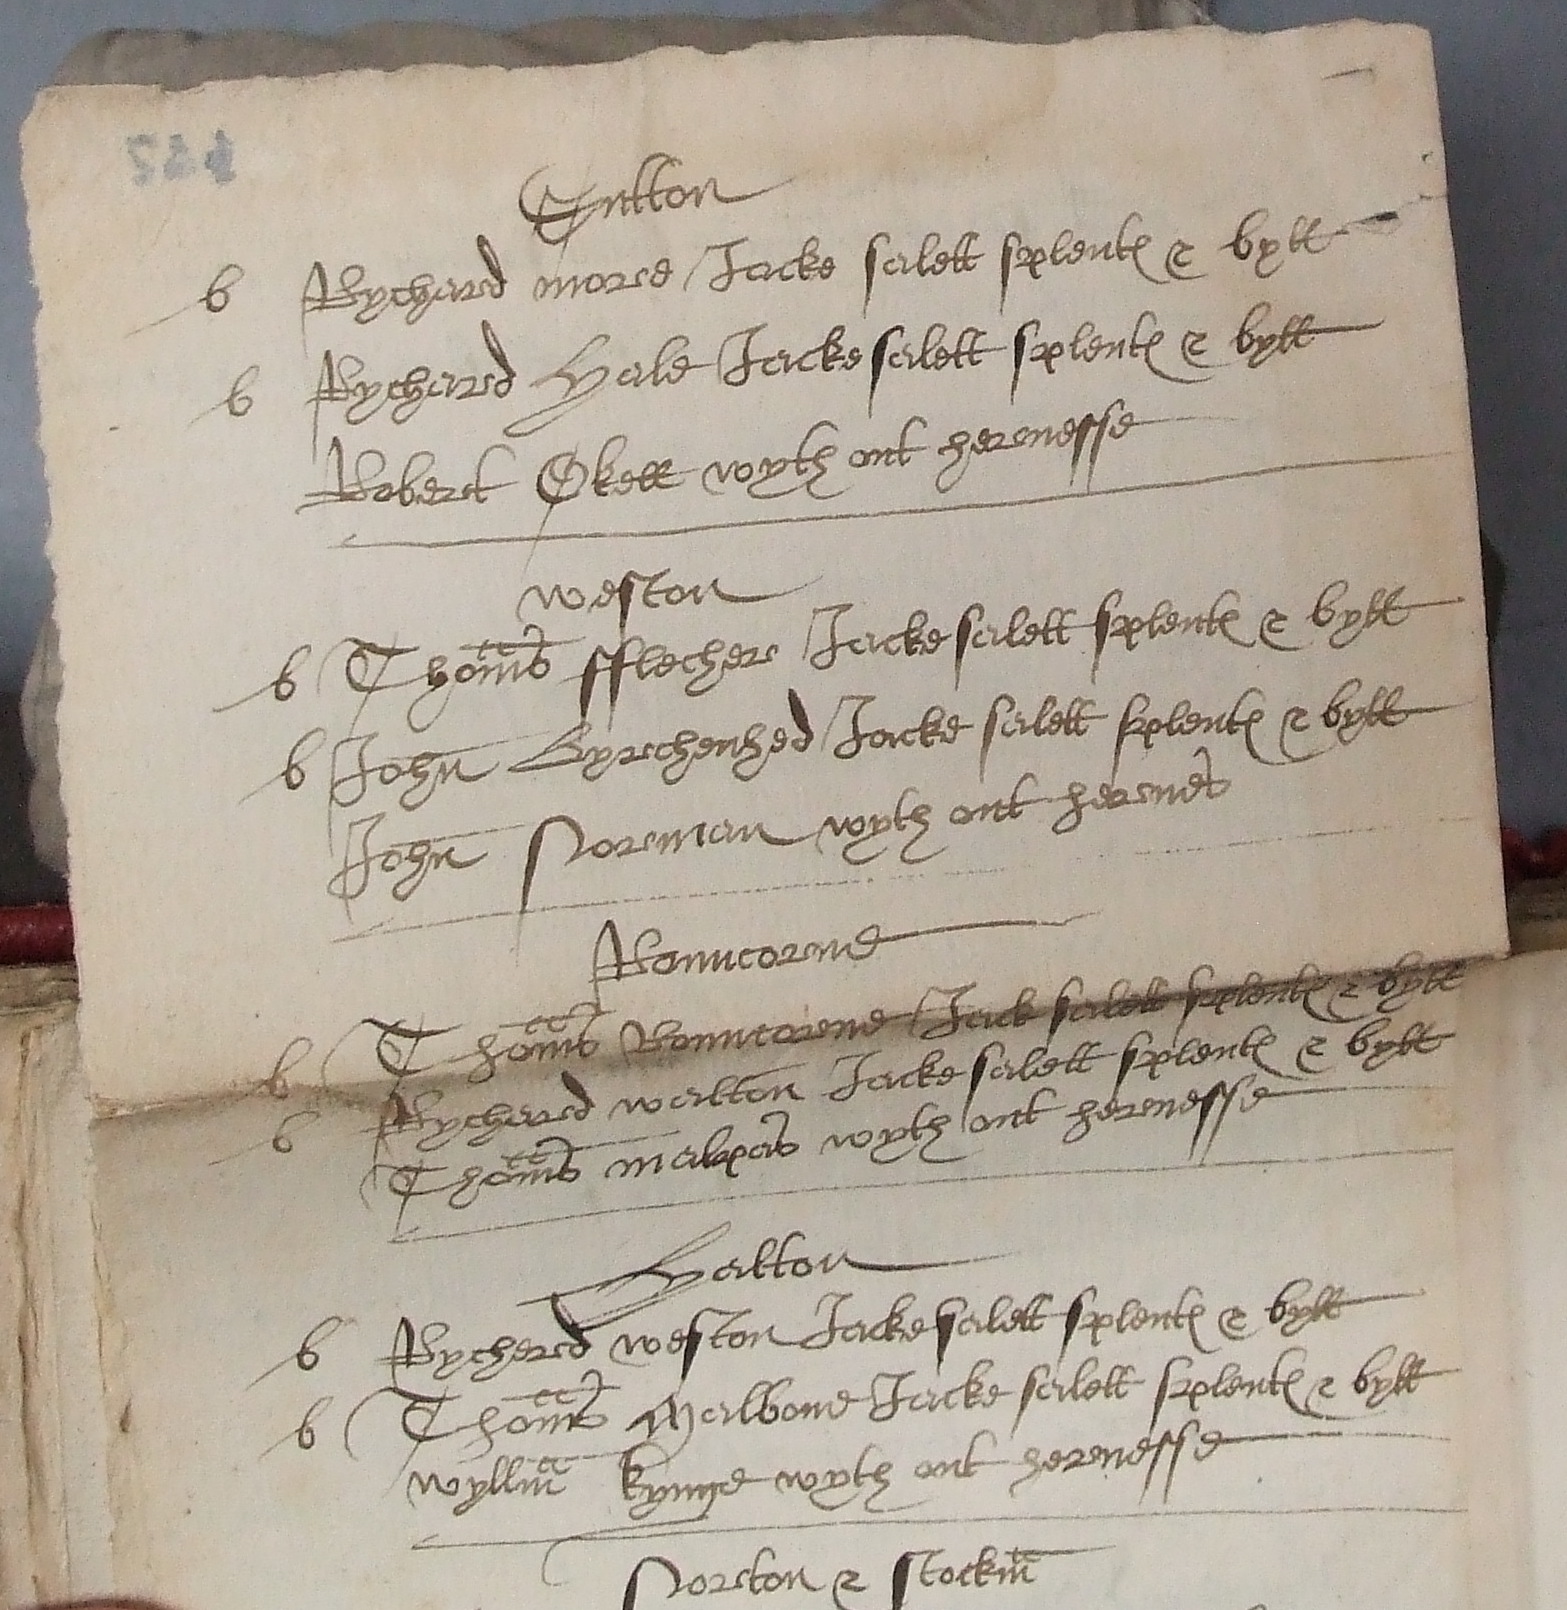 Sutton
b Rychard more Jacke salett splent & byll
b Rychard Hale Jacke salett splent & byll
Robert Okell wyth out hernesse
weston
b Thoms fflecher Jacke salett splent & byll
b John Byrchenhed Jacke salett splent & byll
John Norman wyth out hernes
Ronncorne
b Thoms Ronncorne Jack salett splent & byll
b Rychard walton Jacke salett splent & byll
Thoms malpas wyth out hernesse
Halton
b Rycherd weston Jacke salett splent & byll
b Thoms Malbone Jacke salett splent & byll
wyllm kynge wyth out hernesse
Norton & stockm